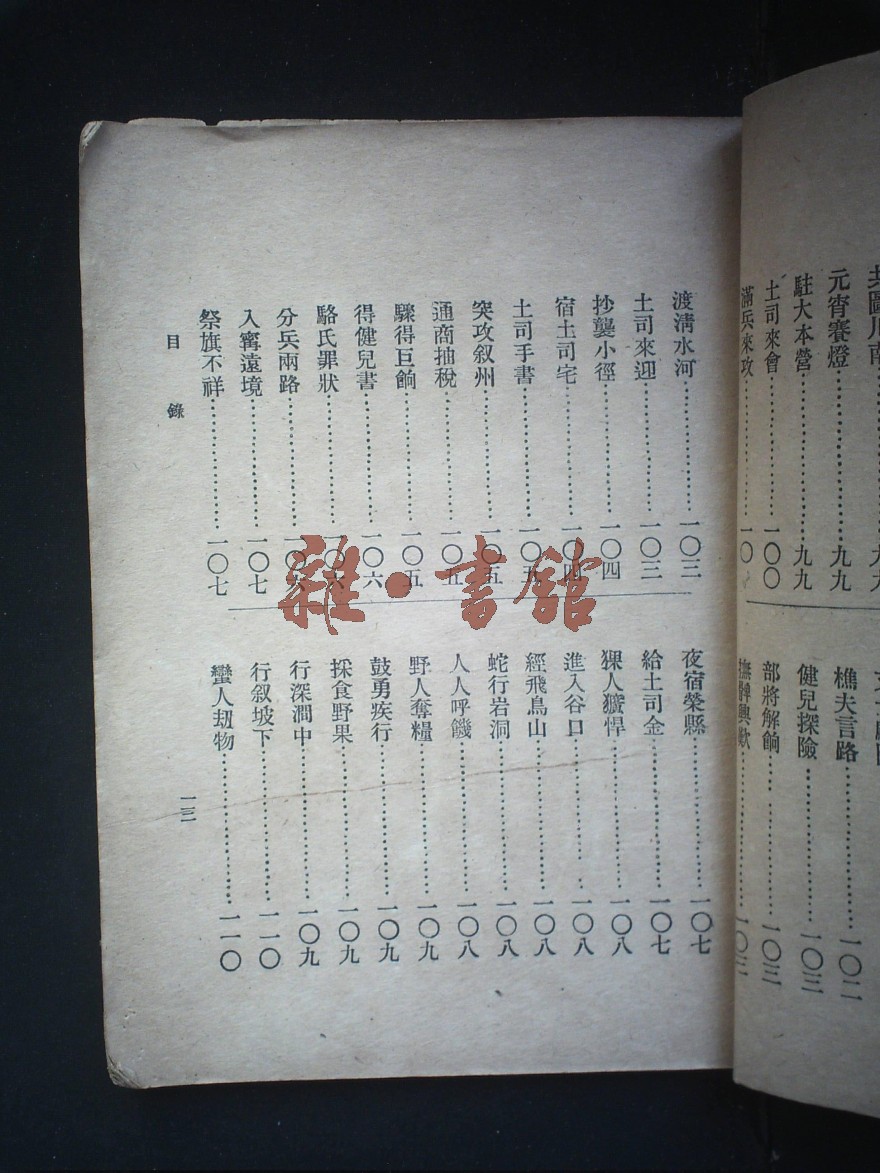 元宵賽燈⋯⋯九九
駐大本營⋯⋯九九
土司來會⋯⋯一〇〇
滿兵來攻⋯⋯一〇
樵夫言路⋯⋯一〇二
健兒探險⋯⋯一〇三
部將解餉⋯⋯一〇三
渡淸水河⋯⋯一〇三
土司來迎⋯⋯一〇三
抄襲小徑⋯⋯一〇四
宿土司宅⋯⋯一〇四
土司手書⋯⋯一〇五
突攻叙州⋯⋯一〇五
通商抽稅⋯⋯一〇五
驟得巨餉⋯⋯一〇五
得健兒書⋯⋯一〇六
駱氏罪狀⋯⋯一〇六
分兵兩路⋯⋯一〇六
入甯遠境⋯⋯一〇七
祭旗不祥⋯⋯一〇七
夜宿榮縣⋯⋯一〇七
給土司金⋯⋯一〇七
猓人獷悍⋯⋯一〇八
進入谷口⋯⋯一〇八
經飛鳥山⋯⋯一〇八
蛇行岩洞⋯⋯一〇八
人人呼饑⋯⋯一〇八
野人奪糧⋯⋯一〇九
鼓勇疾行⋯⋯一〇九
採食野果⋯⋯一〇九
行深澗中⋯⋯一〇九
行叙坡下⋯⋯一一〇
蠻人刧物⋯⋯一一〇
目錄
一三
雜·書館